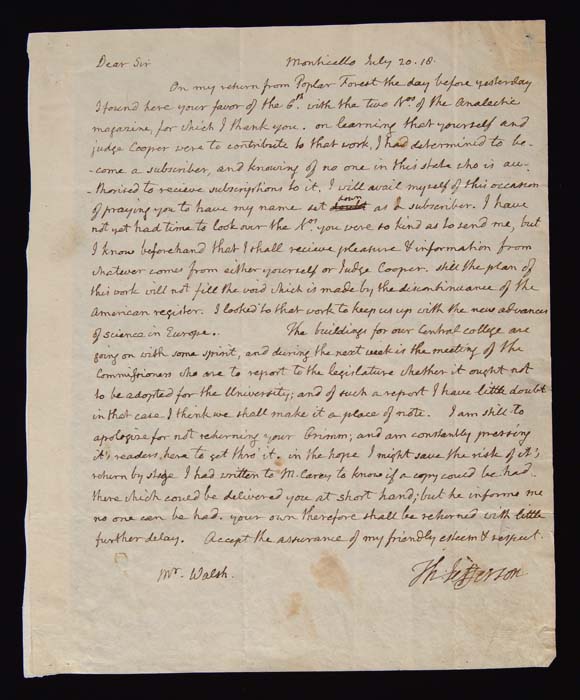 Dear Sir Monticello July 20. 18.
On my return from Poplar Forest the day before yesterday
I found here your favor of the 6th. with the two Nos. of the Analectic
magazine, for which I thank you. on learning that yourself and
judge Cooper were to contribute to that work, I had determined to be-
-come a subscriber, and knowing of no one in this state who is au-
-thorised to recieve subscriptions to it, I will avail myself of this occasion
of praying you to have my name set down as a subscriber. I have
not yet had time to look over the Nos. you were so kind as to send me, but
I know beforehand that I shall recieve pleasure & information from
whatever comes from either yourself or Judge Cooper. still the plan of
this work will not fill the void which is made by the discontinuance of the
American register. I looked to that work to keep us up with the new advances
of science in Europe. The buildings for our Central college are
going on with some spirit, and during the next week is the meeting of the
Commissioners who are to report to the legislature whether it ought not
to be adopted for the University; and of such a report I have little doubt
in that case I think we shall make it a place of note. I am still to
apologize for not returning your Grimm; and am constantly pressing
it's readers here to get thro' it. in the hope I might save the risk of it's
return by stage I had written to M. Carey to know if a copy could be had
there which could be delivered you at short hand; but he informs me
no one can be had. your own therefore shall be returned with little
further delay. Accept the assurance of my friendly esteem & respect.
Mr. Walsh. Th: Jefferson